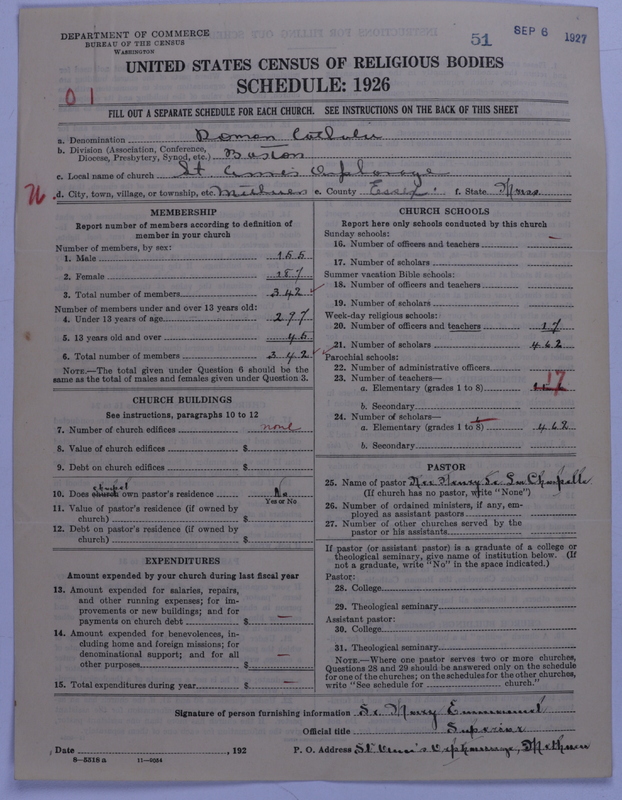 DEPARTMENT OF COMMERCE
BUREAU OF THE CENSUS
WASHINGTON
51
SEP 6 1927
UNITED STATES CENSUS OF RELIGIOUS BODIES
SCHEDULE: 1926
0 1
FILL OUT A SEPARATE SCHEDULE FOR EACH CHURCH. SEE INSTRUCTIONS ON THE BACK OF THIS SHEET
a. Denomination Roman Catholic
b. Division (Association, Conference, Diocese, Presbytery, Synod, etc.) Boston
c. Local name of church St. Anne's Orphanage
d. City, town, village, or township, etc. Methuen e. County Essex f. State Mass
MEMBERSHIP
Report number of members according to definition of member in your church
Number of members, by sex:
1. Male 155
2. Female 187
3. Total number of members 342
Number of members under and over 13 years old:
4. Under 13 years of age 297
5. 13 years old and over 45
6. Total number of members 342
NOTE.—The total given under Question 6 should be the same as the total of males and females given under Question 3.
CHURCH BUILDINGS
See instructions, paragraphs 10 to 12
7. Number of church edifices none
8. Value of church edifices $
9. Debt on church edifices $
10. Does church chapel own pastor's residence No
Yes or No
11. Value of pastor's residence (if owned by church) $
12. Debt on pastor's residence (if owned by church) $
EXPENDITURES
Amount expended by your church during last fiscal year
13. Amount expended for salaries, repairs, and other running expenses; for improvements or new buildings; and for payments on church debt $ —
14. Amount expended for benevolences, including home and foreign missions; for denominational support; and for all other purposes $ —
15. Total expenditures during year $ —
CHURCH SCHOOLS
Report here only schools conducted by this church
Sunday schools:
16. Number of officers and teachers —
17. Number of scholars
Summer vacation Bible schools:
18. Number of officers and teachers
19. Number of scholars
Week-day religious schools:
20. Number of officers and teachers 17
21. Number of scholars 462
Parochial schools:
22. Number of administrative officers
23. Number of teachers—
a. Elementary (grades 1 to 8) 17
b. Secondary
24. Number of scholars—
a. Elementary (grades 1 to 8) 462
b. Secondary
PASTOR
25. Name of pastor Rev Henry Le La Chapelle
(If church has no pastor, write "None")
26. Number of ordained ministers, if any, employed as assistant pastors
27. Number of other churches served by the pastor or his assistants
If pastor (or assistant pastor) is a graduate of a college or theological seminary, give name of institution below. (If not a graduate, write "No" in the space indicated.)
Pastor:
28. College
29. Theological seminary
Assistant pastor:
30. College
31. Theological seminary
NOTE.—Where one pastor serves two or more churches, Questions 28 and 29 should be answered only on the schedule for one of the churches; on the schedules for the other churches, write "See schedule for church."
Signature of person furnishing information Sr. Mary Emmanuel
Official title Superior
Date , 192 P. O. Address St Anne's Orphanage, Methuen
8—5518a 11—9054